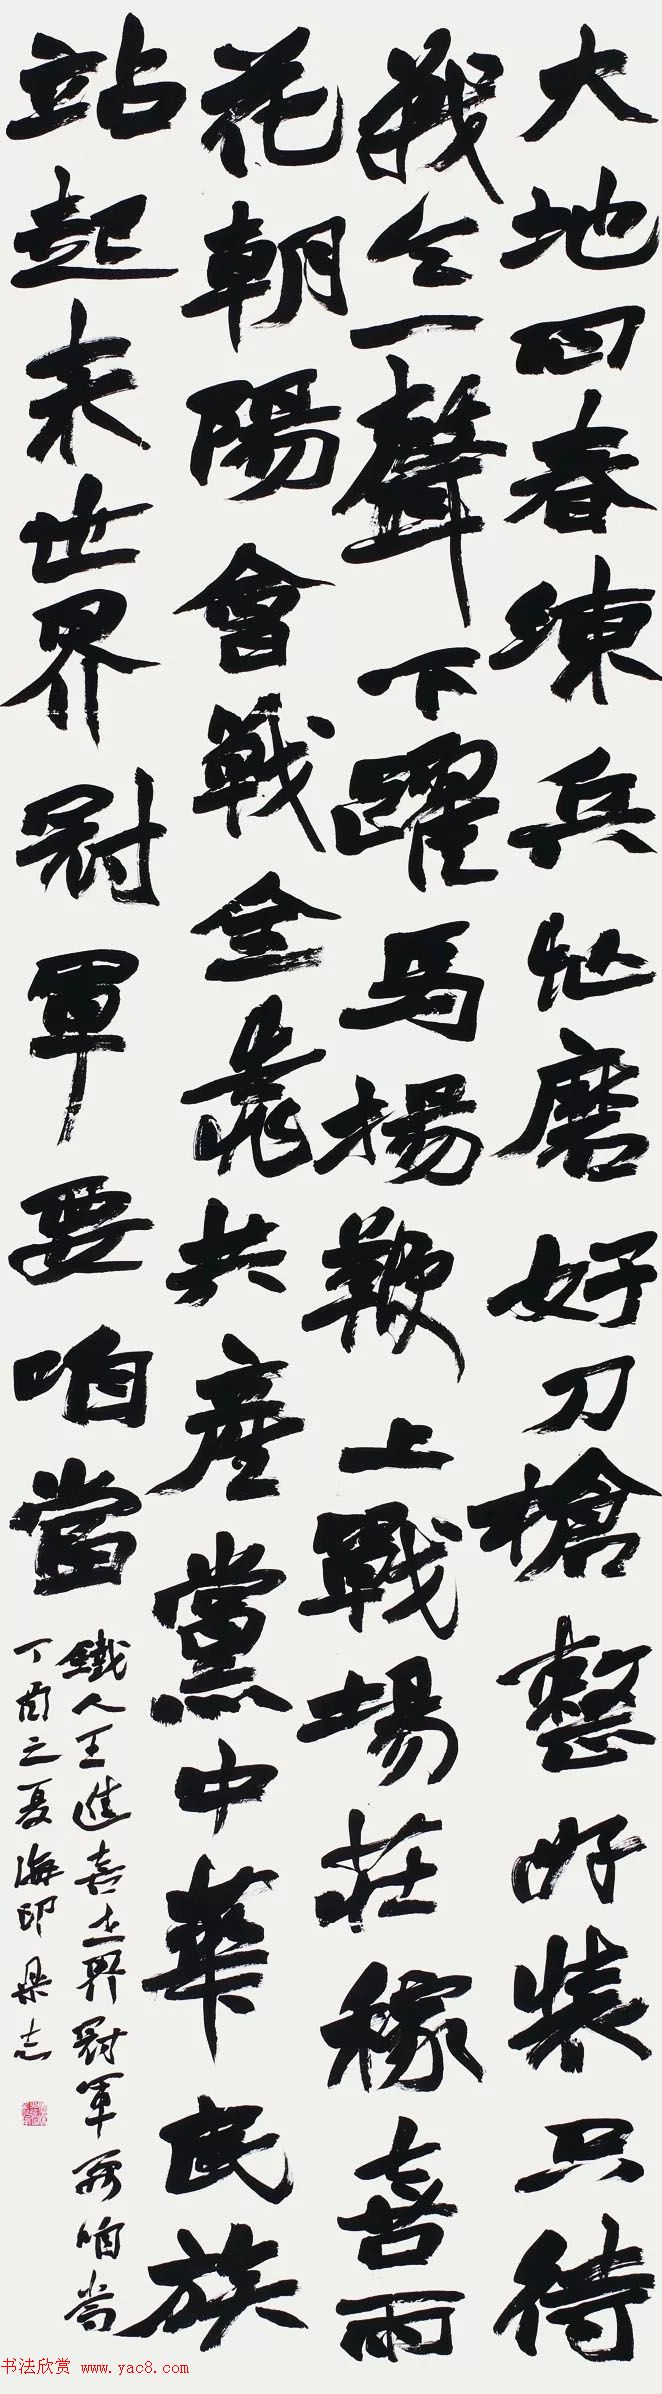 大地回春練兵忙磨好刀槍整好裝只待
戰令一聲下躍馬揚鞭上戰場莊稼喜雨
花朝陽會戰全靠共產黨中華民族
站起來世界冠軍要咱當
鐵人王進喜世界冠軍要咱當
丁酉之夏海印梁志
书法欣赏 www.yac8.com